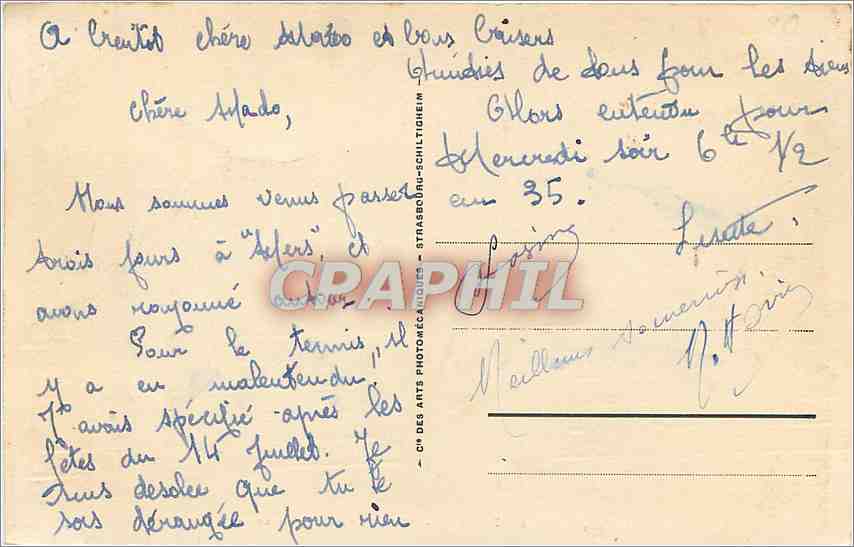 A bientôt chère Mado et bons baisers
Chère Mado,
Nous sommes venus passer
trois jours à "Mers", et
avons rayonné autour.
Pour le tennis, il
y a eu malentendu.
J'avais spécifié après les
fêtes du 14 Juillet. Je
suis désolée que tu te
sois dérangée pour rien
Amitiés de tous pour les tiens
Alors entendu pour
Mercredi soir 6h 1/2
au 35.
Lisette.
Meilleurs souvenirs.
CPAPHIL
— Cie DES ARTS PHOTOMÉCANIQUES - STRASBOURG-SCHILTIGHEIM —